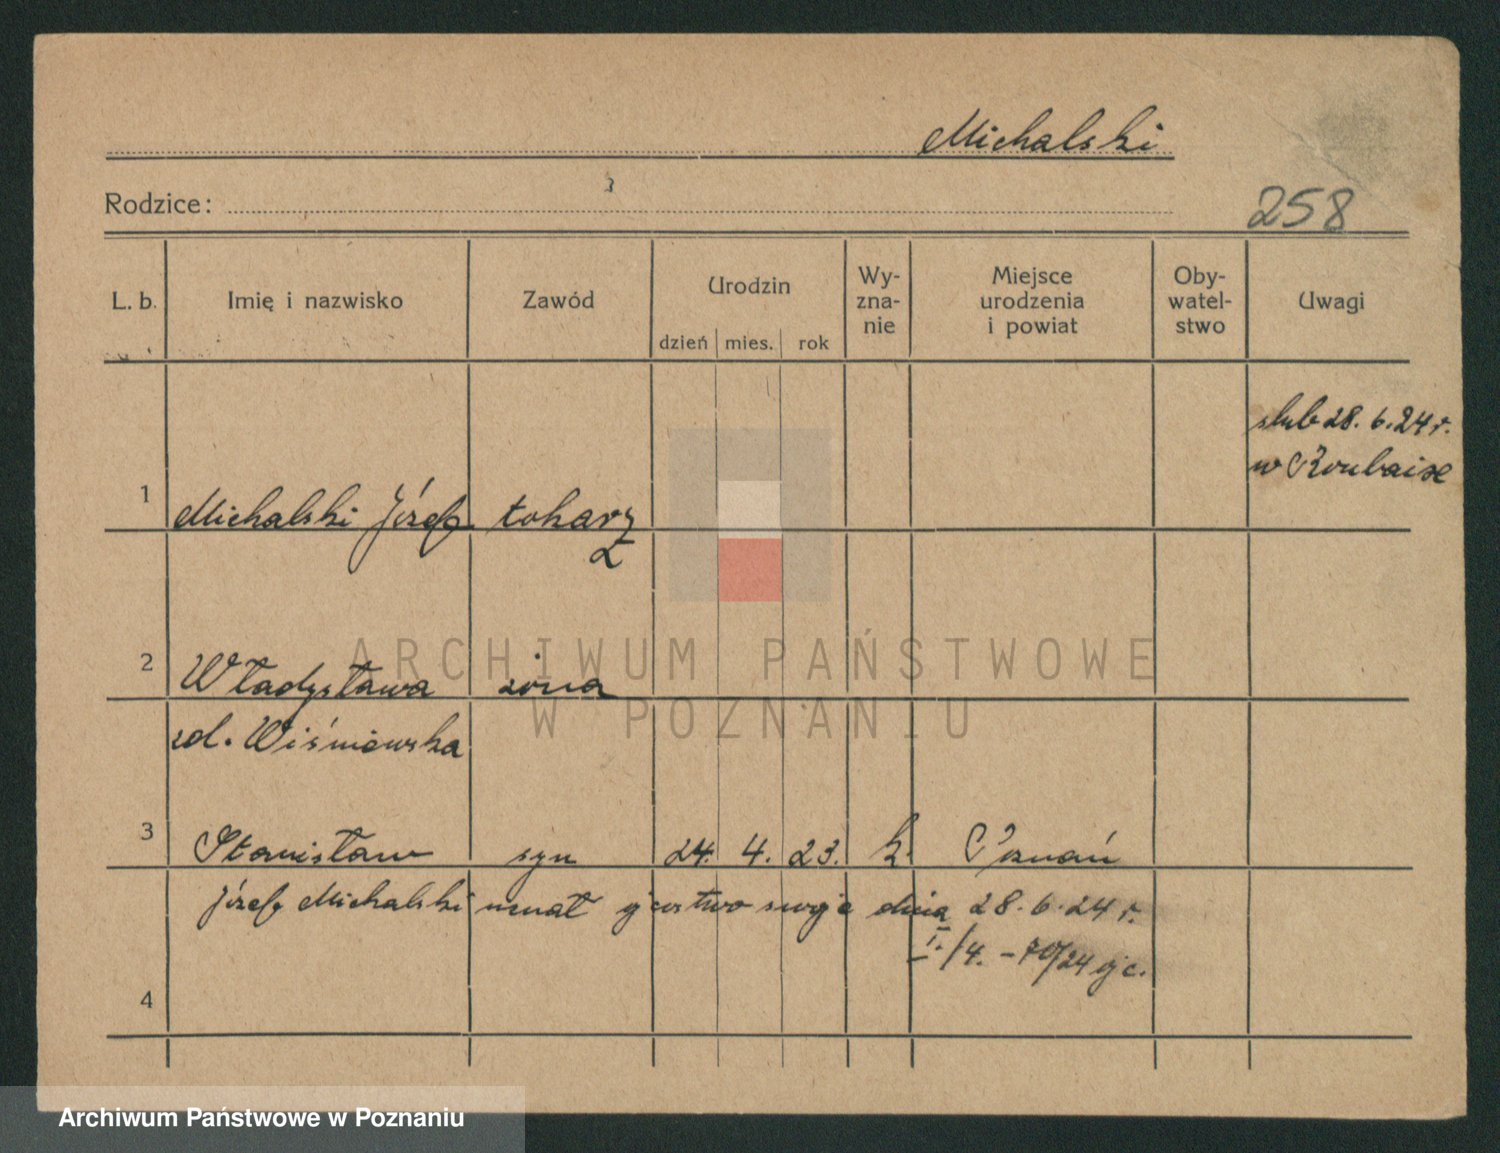 Michalski
Rodzice:
258
L. b.
Imię i nazwisko
Zawód
Urodzin
dzień mies. rok
Wy-
zna-
nie
Miejsce
urodzenia
i powiat
Oby-
watel-
stwo
Uwagi
ślub 28.6.24 r.
w Roubaix
1 Michalski Józef tokarz
2 Władysława żona
zd. Wiśniewska
3 Stanisław syn 24. 4. 23. k. Poznań
Józef Michalski uznał ojcostwo swoje dnia 28.6.24 r.
I./4. - 70/24 ojc.
4
ARCHIWUM PAŃSTWOWE
W POZNANIU
Archiwum Państwowe w Poznaniu